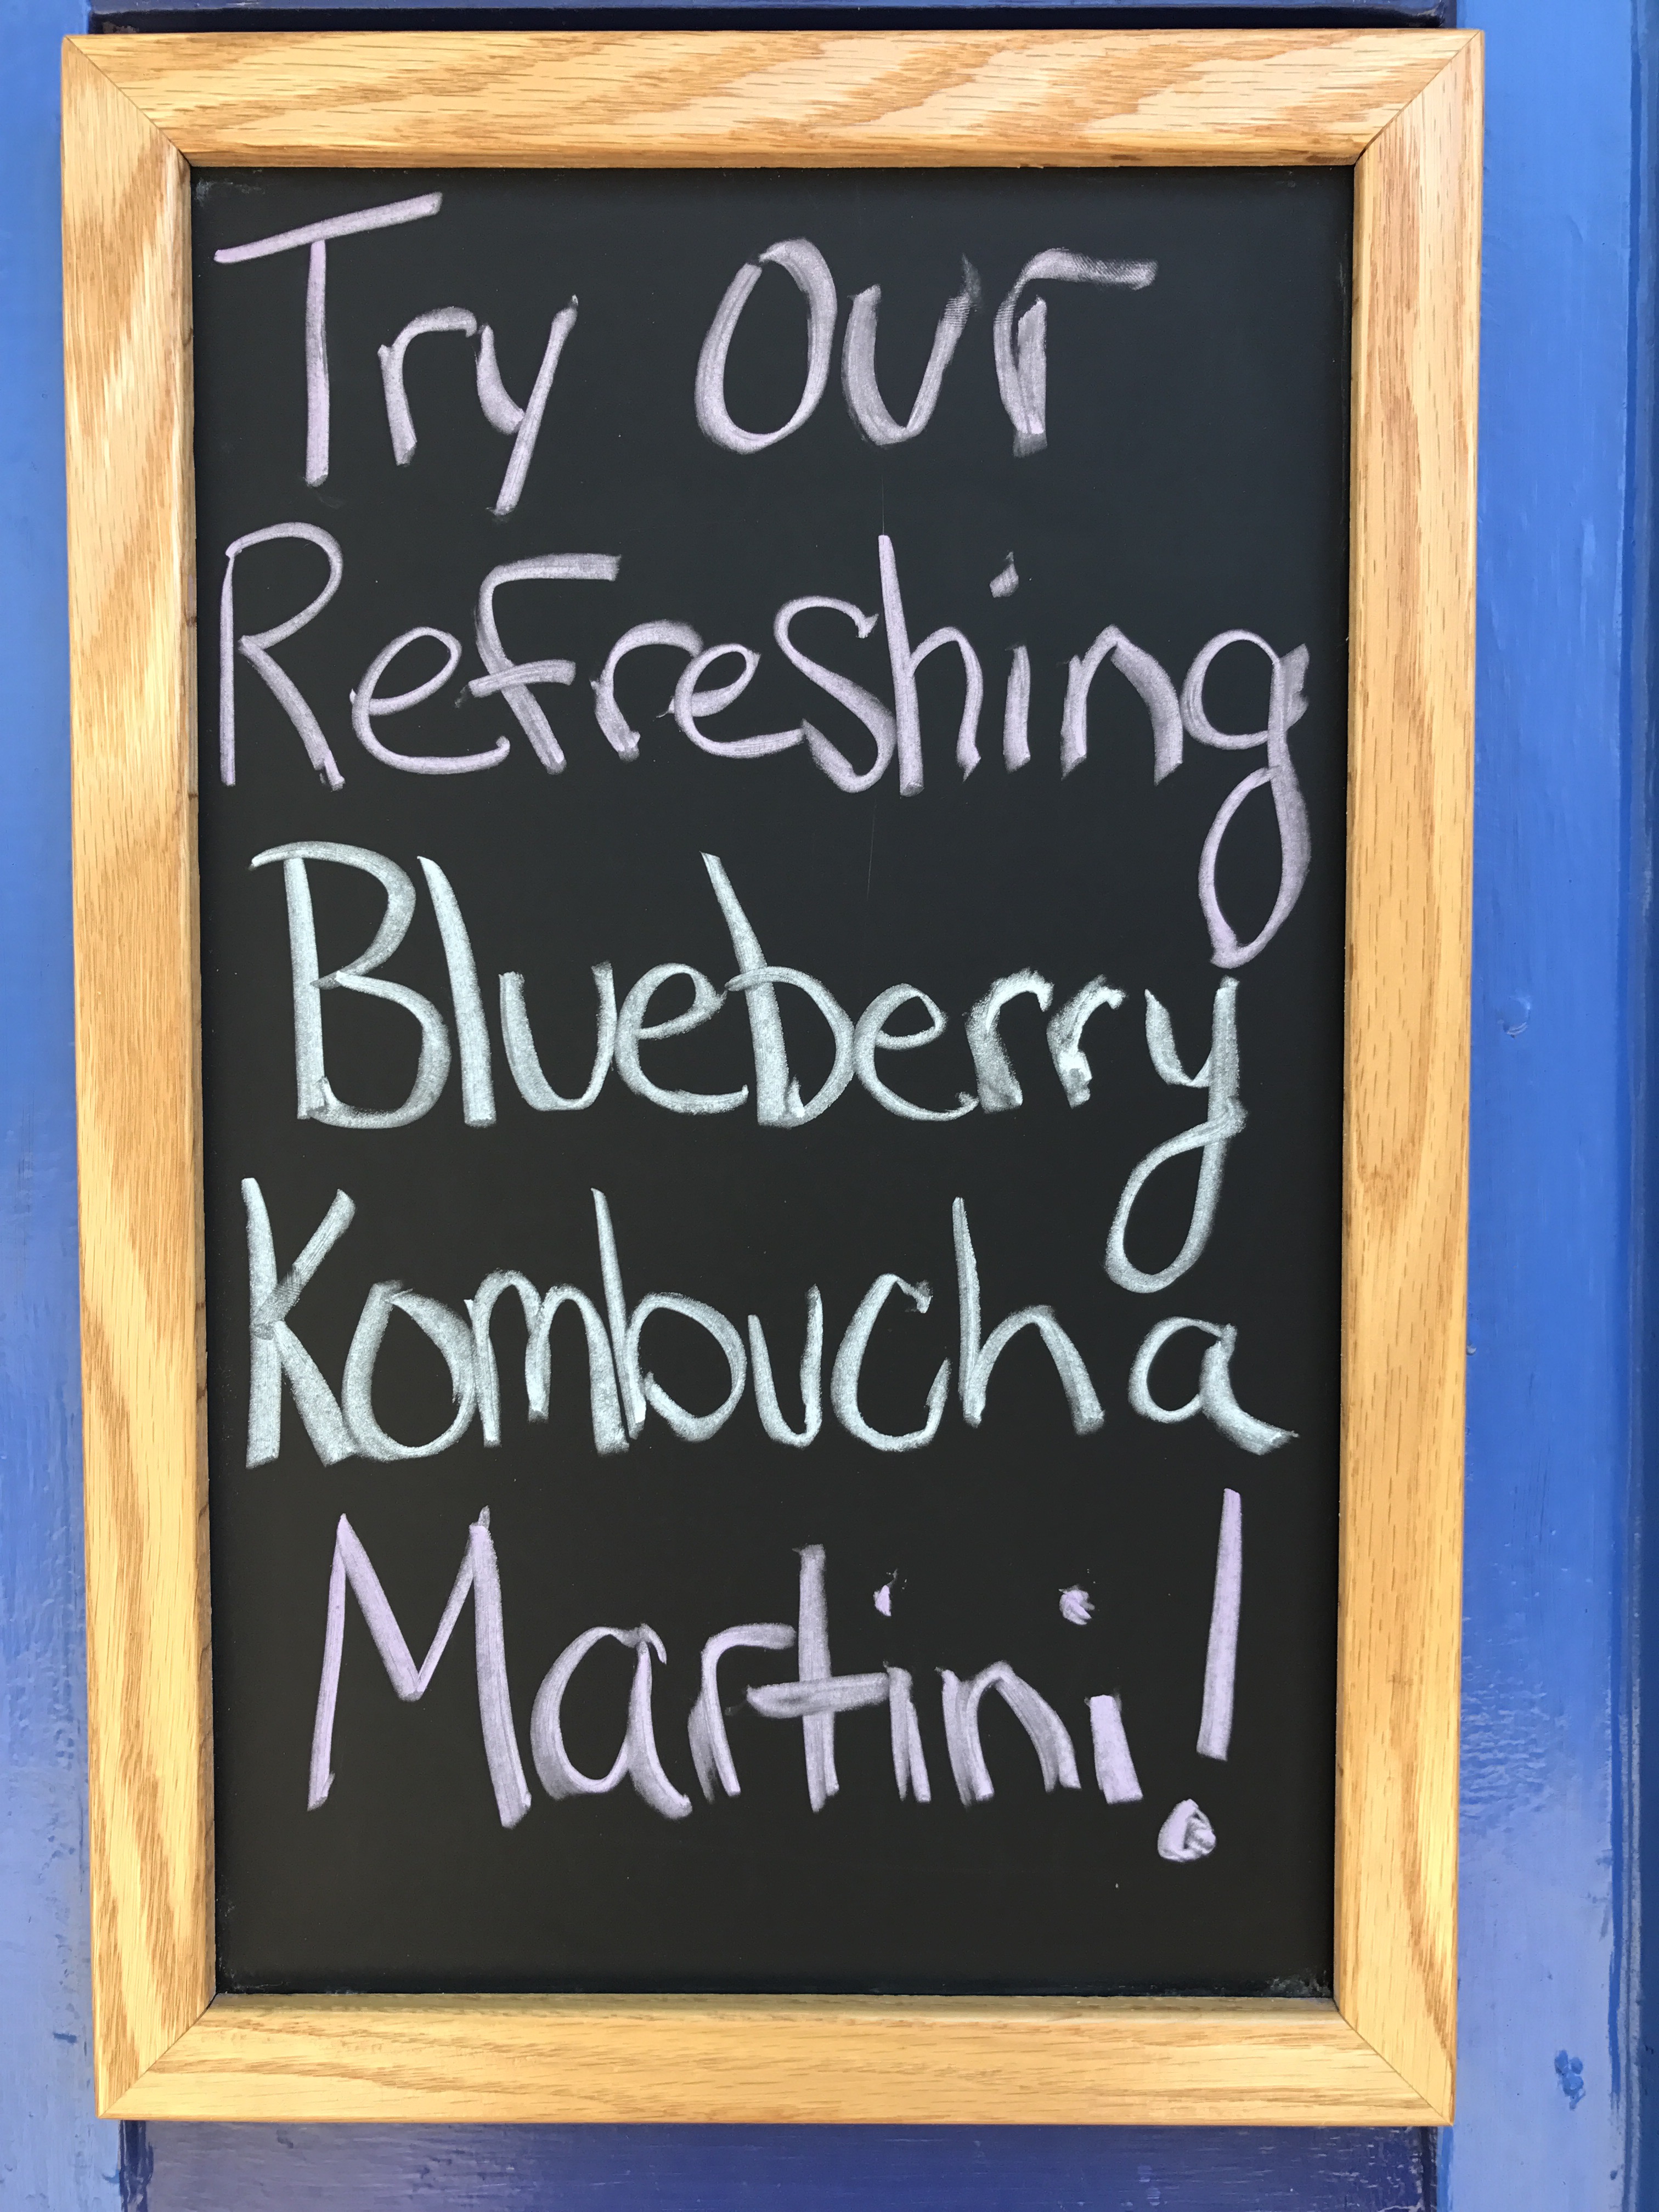 Try Our
Refreshing
Blueberry
Kombucha
Martini!